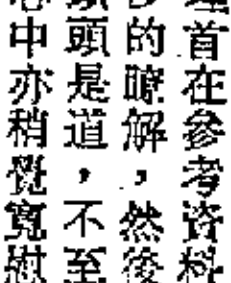 首在參考資料
的瞭解，然後
頭是道，不至
中亦稍覺寬慰